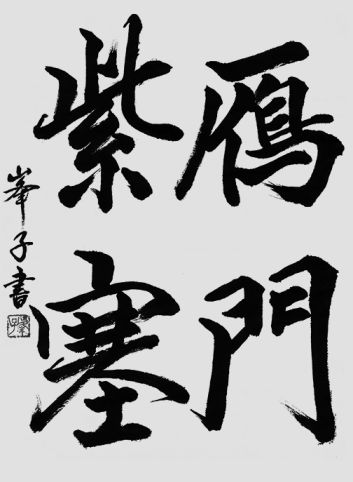 鴈門
紫塞
峯子書